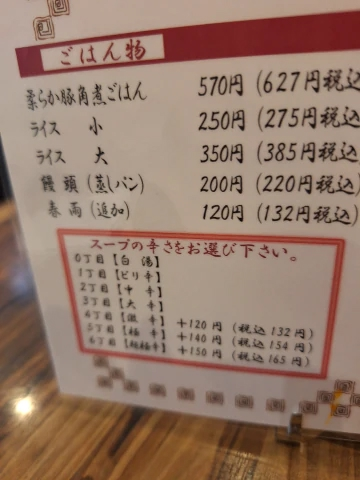 ごはん物
柔らか豚角煮ごはん 570円 (627円税込
ライス 小 250円 (275円税込
ライス 大 350円 (385円税込
饅頭 (蒸しパン) 200円 (220円税込)
春雨 (追加) 120円 (132円税込)
スープの辛さをお選び下さい。
0丁目【白湯】
1丁目【ピリ辛】
2丁目【中辛】
3丁目【大辛】
4丁目【激辛】 +120円 (税込132円)
5丁目【極辛】 +140円 (税込154円)
6丁目【超極辛】 +150円 (税込165円)